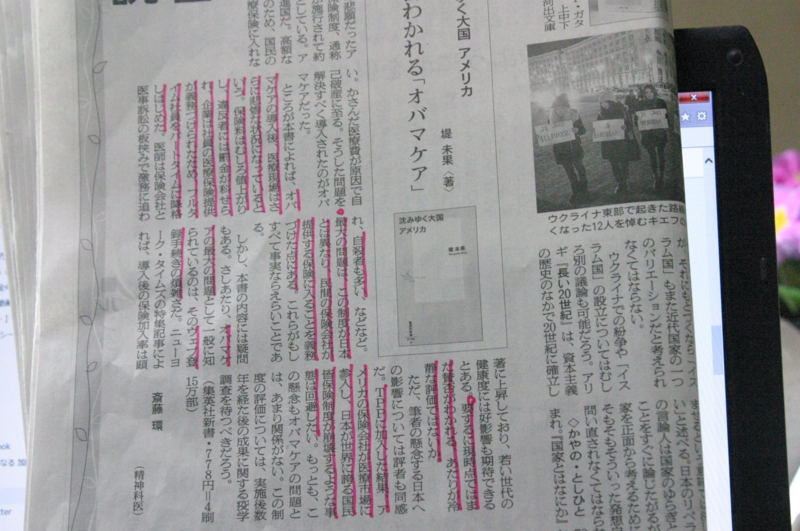 沈みゆく大国 アメリカ
堤 未果〈著〉
わかれる「オバマケア」
い。かさんだ医療費が原因で自
己破産に至る。そうした問題を
解決すべく導入されたのがオバ
マケアだった。
ところが本書によれば、オバ
マケアの導入後、医療現場はさ
らに悲惨な状況になっていると
いう。保険料はむしろ値上がり
し、違反者には罰金が科せら
れ、企業は社員の医療保険提供
が義務づけられたため、フルタ
イム社員をパートタイムに降格
しはじめた。医師は保険会社と
医事訴訟の板挟みで激務に追わ
れ、自殺者も多い、などなど。
最大の問題は、この制度が日本
とは異なり、民間の保険会社が
提供する保険に入ることを義務
づけた点にある。これらがもし
すべて事実ならえらいことであ
る。
しかし、本書の内容には疑問
もある。さしあたり、オバマケ
アの最大の問題として一般に知
られているのは、そのウェブ登
録手続きの煩雑さだ。ニューヨ
ーク・タイムズの特集記事によ
れば、導入後の保険加入率は顕
著に上昇しており、若い世代の
健康度には好影響も期待できる
とある。要するに現時点ではま
だ賛否がわかれる、あたりが冷
静な評価ではないか。
ただ、筆者の懸念する日本へ
の影響については評者も同感
だ。TPPに加入した結果、ア
メリカの保険会社が医療市場に
参入し、日本が世界に誇る国民
皆保険制度が崩壊するような事
態は回避したい。もっとも、こ
の懸念もオバマケアの問題と
は、あまり関係がない。この制
度の評価については、実施後数
年を経た後の成果に関する疫学
調査を待つべきだろう。
(集英社新書・778円=4刷
15万部)
斎藤 環
(精神科医)
沈みゆく大国
アメリカ
堤 未果
ウクライナ東部で起きた路線
くなった12人を悼むキエフの
ラム国」もまた近代国家の一つ
のバリエーションだと考えられ
なくてはならない。
ウクライナでの紛争や「イス
ラム国」の設立についてはむし
ろ別の議論も可能だろう。アリ
ギ『長い20世紀』は、資本主義
の歴史のなかで20世紀に確立し
いと述べる。日本のリベラ
の言論人は国家のゆらぎと
ことをすぐに論じたがる。
家を正面から考えるために
そもそもそういった発想
問い直されなくてはなら
◇かやの・としひと
まれ。『国家とはなにか』